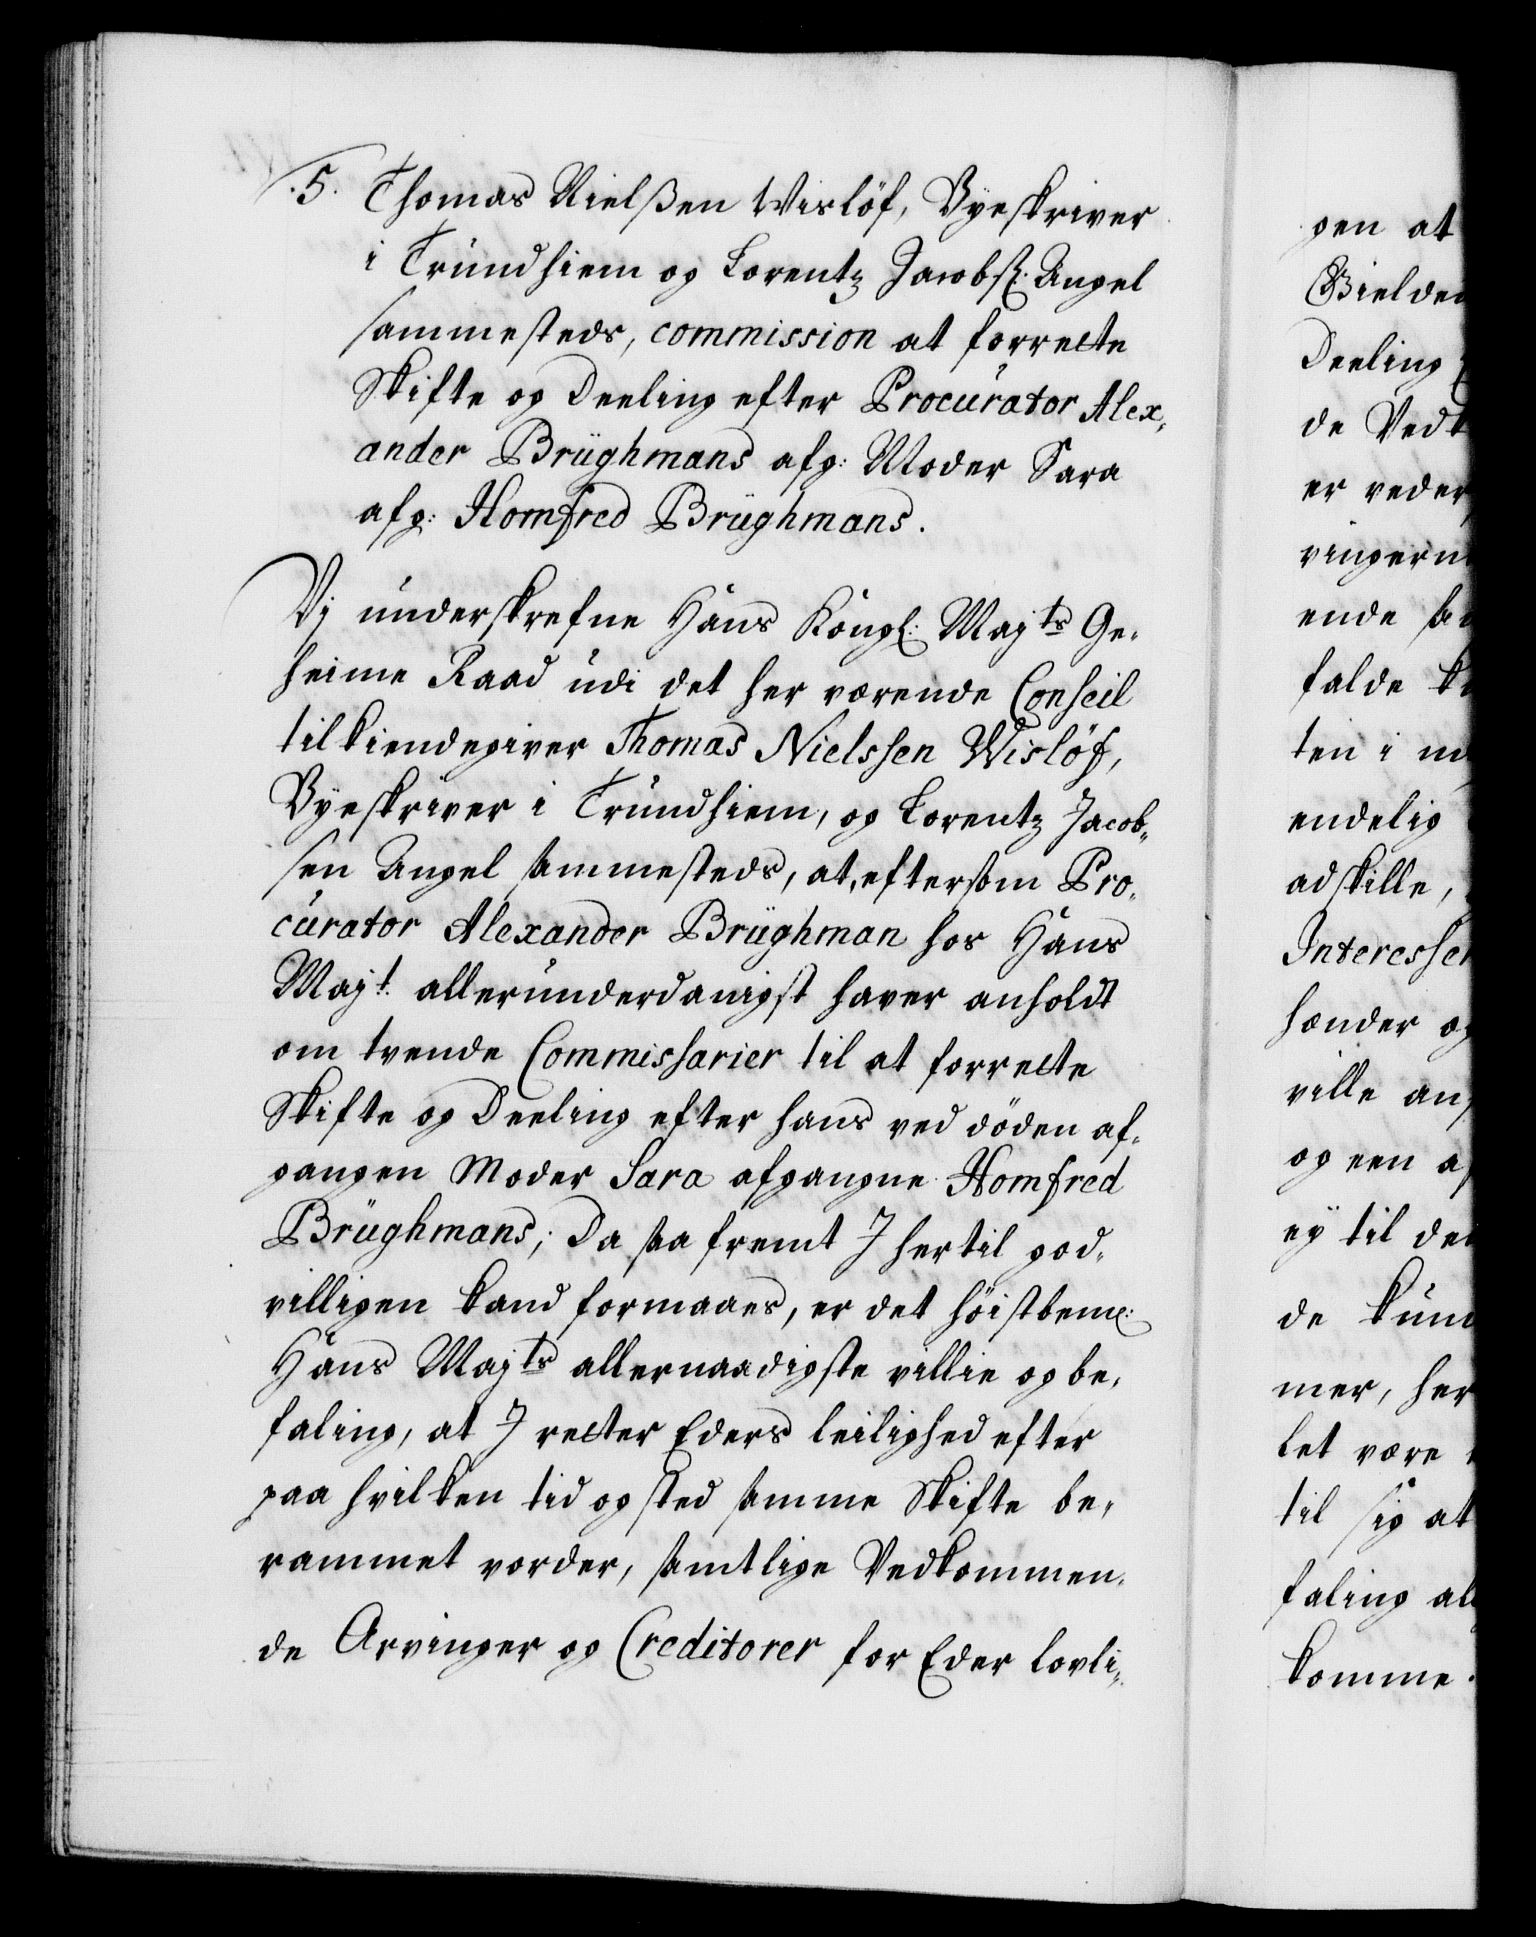 .5. Thomas Nielßen Wislöf, Byeskriver
i Trundhiem og Lorentz Jacobs: Angel
sammesteds, commission at forrette
Skifte og Deeling efter Procurator Alex,
ander Brüghmans afg: Moder Sara
afg: Homfred Brüghmans.
Vj underskrefne Hans Kongl: Majts Ge,
heime Raad udi det her værende Conseil
tilkiendegiver Thomas Nielssen Wislöf,
Byeskriver i Trundhiem, og Lorentz Jacob,,
sen Angel sammesteds, at, eftersom Pro,
curator Alexander Brüghman hos Hans
Majt. allerunderdanigst haver anholdt
om tvende Commissarier til at forrette
Skifte og Deeling efter hans ved döden af,
gangen Moder Sara afgangne Homfred
Brüghmans; Da saa fremt I hertil god,
villigen kand formaaes, er det höistbem:
Hans Majts allernaadigste villie og be,
faling, at I retter Eders leilighed efter
paa hvilken tid og sted samme Skifte be,
rammet vorder, samtlige Vedkommen,
de Arvinger og Creditorer for Eder lovli,,
gen at
Gielden
Deeling
de Vedk
er veder
vingern
ende
falde
ten i
endelig
adskille,
Interessen
hænder og
ville
og een
ey til det
de kund
mer, her
let være
til sig at
faling
komme.